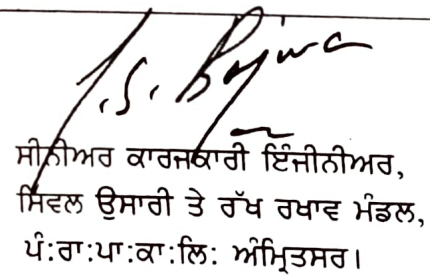 J.S. Bajwa
ਸੀਨੀਅਰ ਕਾਰਜਕਾਰੀ ਇੰਜੀਨੀਅਰ,
ਸਿਵਲ ਉਸਾਰੀ ਤੇ ਰੱਖ ਰਖਾਵ ਮੰਡਲ,
ਪੰ:ਰਾ:ਪਾ:ਕਾ:ਲਿ: ਅੰਮ੍ਰਿਤਸਰ।